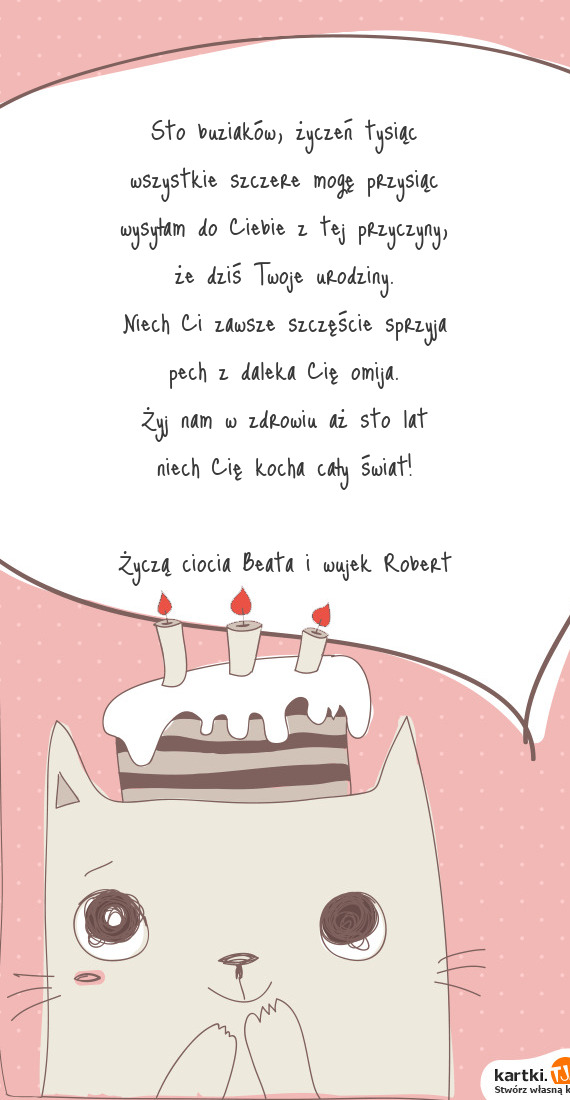 Sto buziaków, życzeń tysiąc
wszystkie szczere mogę przysiąc
wysyłam do Ciebie z tej przyczyny,
że dziś Twoje urodziny.
Niech Ci zawsze szczęście sprzyja
pech z daleka Cię omija.
Żyj nam w zdrowiu aż sto lat
niech Cię kocha cały świat!
Życzą ciocia Beata i wujek Robert
kartki.TJ
Stwórz własną k